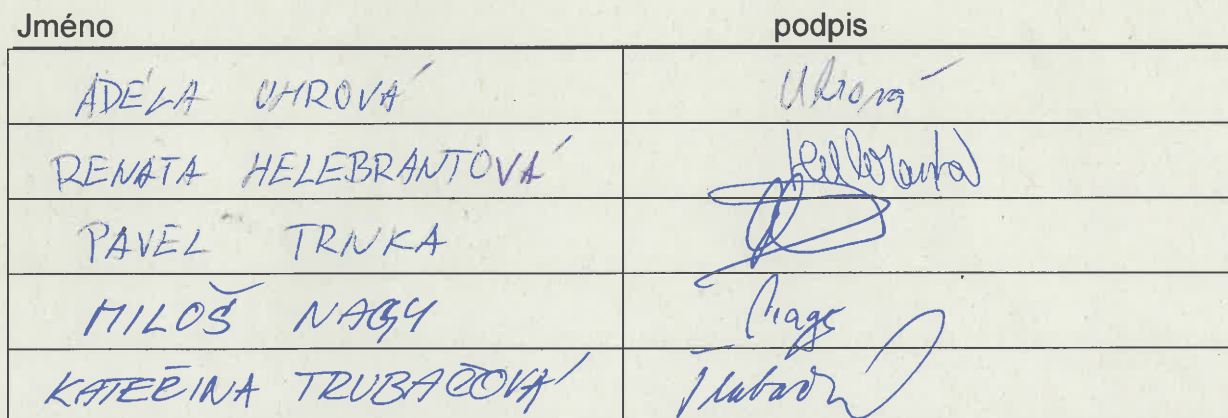 Jméno podpis
ADÉLA UHROVÁ Uhrová
RENATA HELEBRANTOVÁ
PAVEL TRNKA
MILOŠ NAGY Nagy
KATEŘINA TRUBAČOVÁ